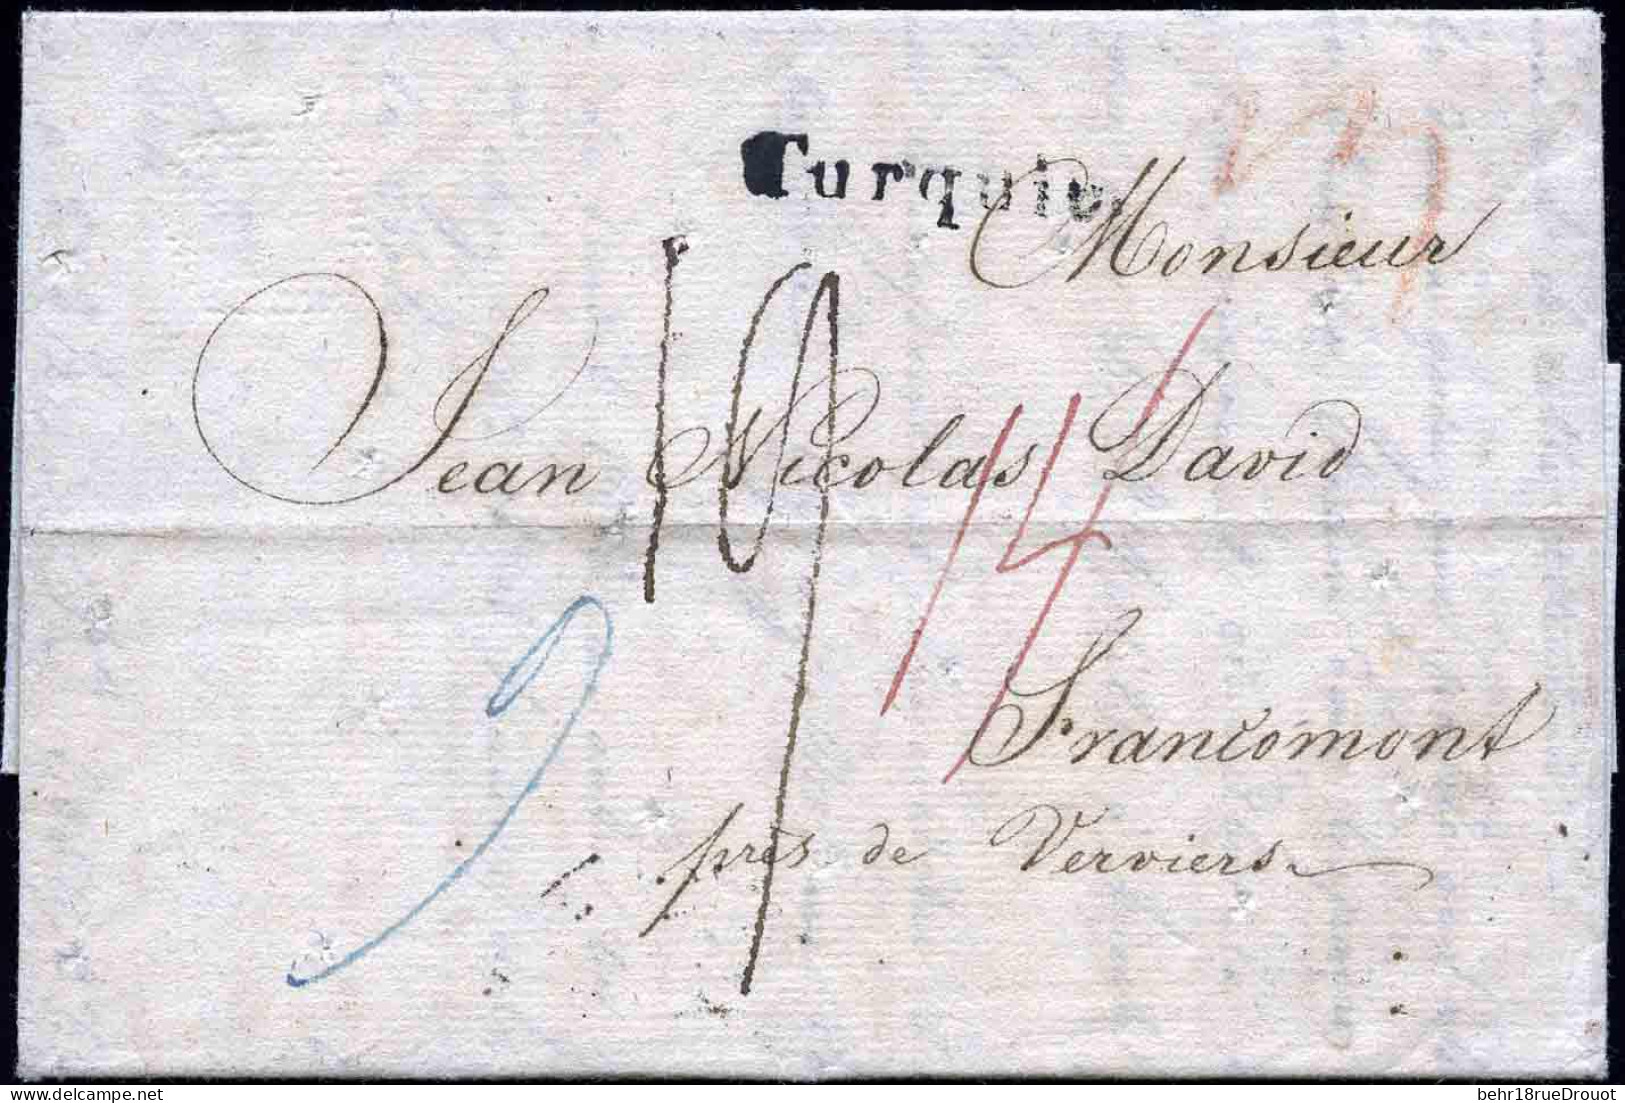 Turquie.
Monsieur
19
Jean Nicolas David
14
Francomont
près de Verviers
behr18rueDrouot